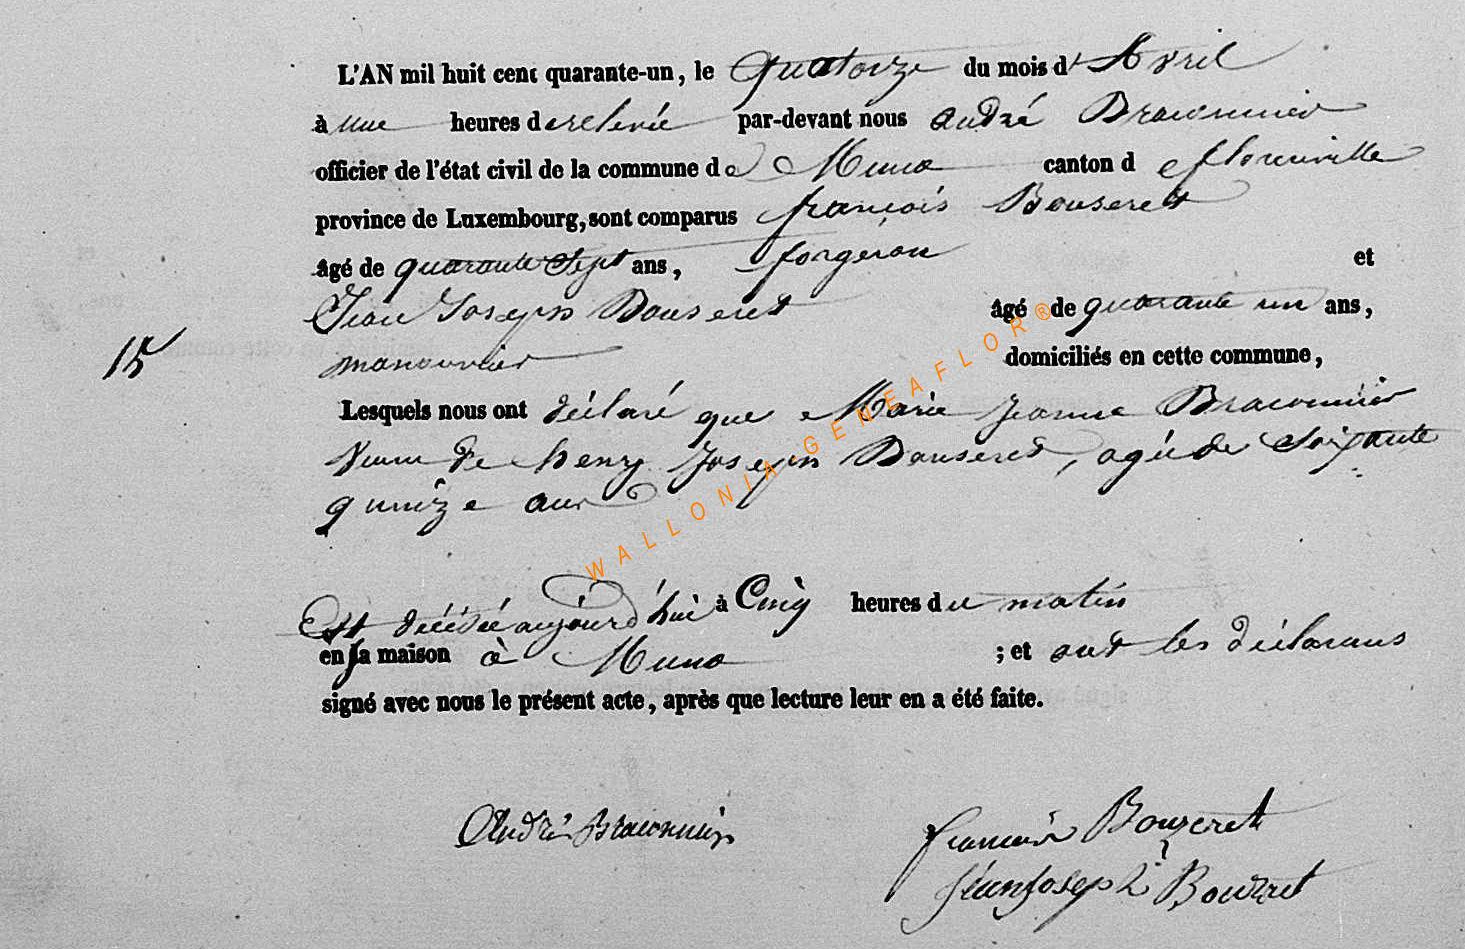 L'AN mil huit cent quarante-un, le quatorze du mois d'Avril
à une heures de relevée par-devant nous andré Braconnier
officier de l'état civil de la commune de Muno canton d e florenville
province de Luxembourg, sont comparus françois Bouseret
âgé de quarante Sept ans, forgeron et
Jean Joseph Bouseret âgé de quarante un ans,
15 manouvrier domiciliés en cette commune,
Lesquels nous ont déclaré que Marie Jeanne Braconnier
Veuve de henry Joseph Bouseret, agée de Soixante
quinze ans
Est décédée aujourd'hui à Cinq heures du matin
en sa maison à Muno ; et ont les déclarans
signé avec nous le présent acte, après que lecture leur en a été faite.
André Braconnier françois Bouzeret
jean joseph Bouzret
WALLONIA-GENEAFLOR®